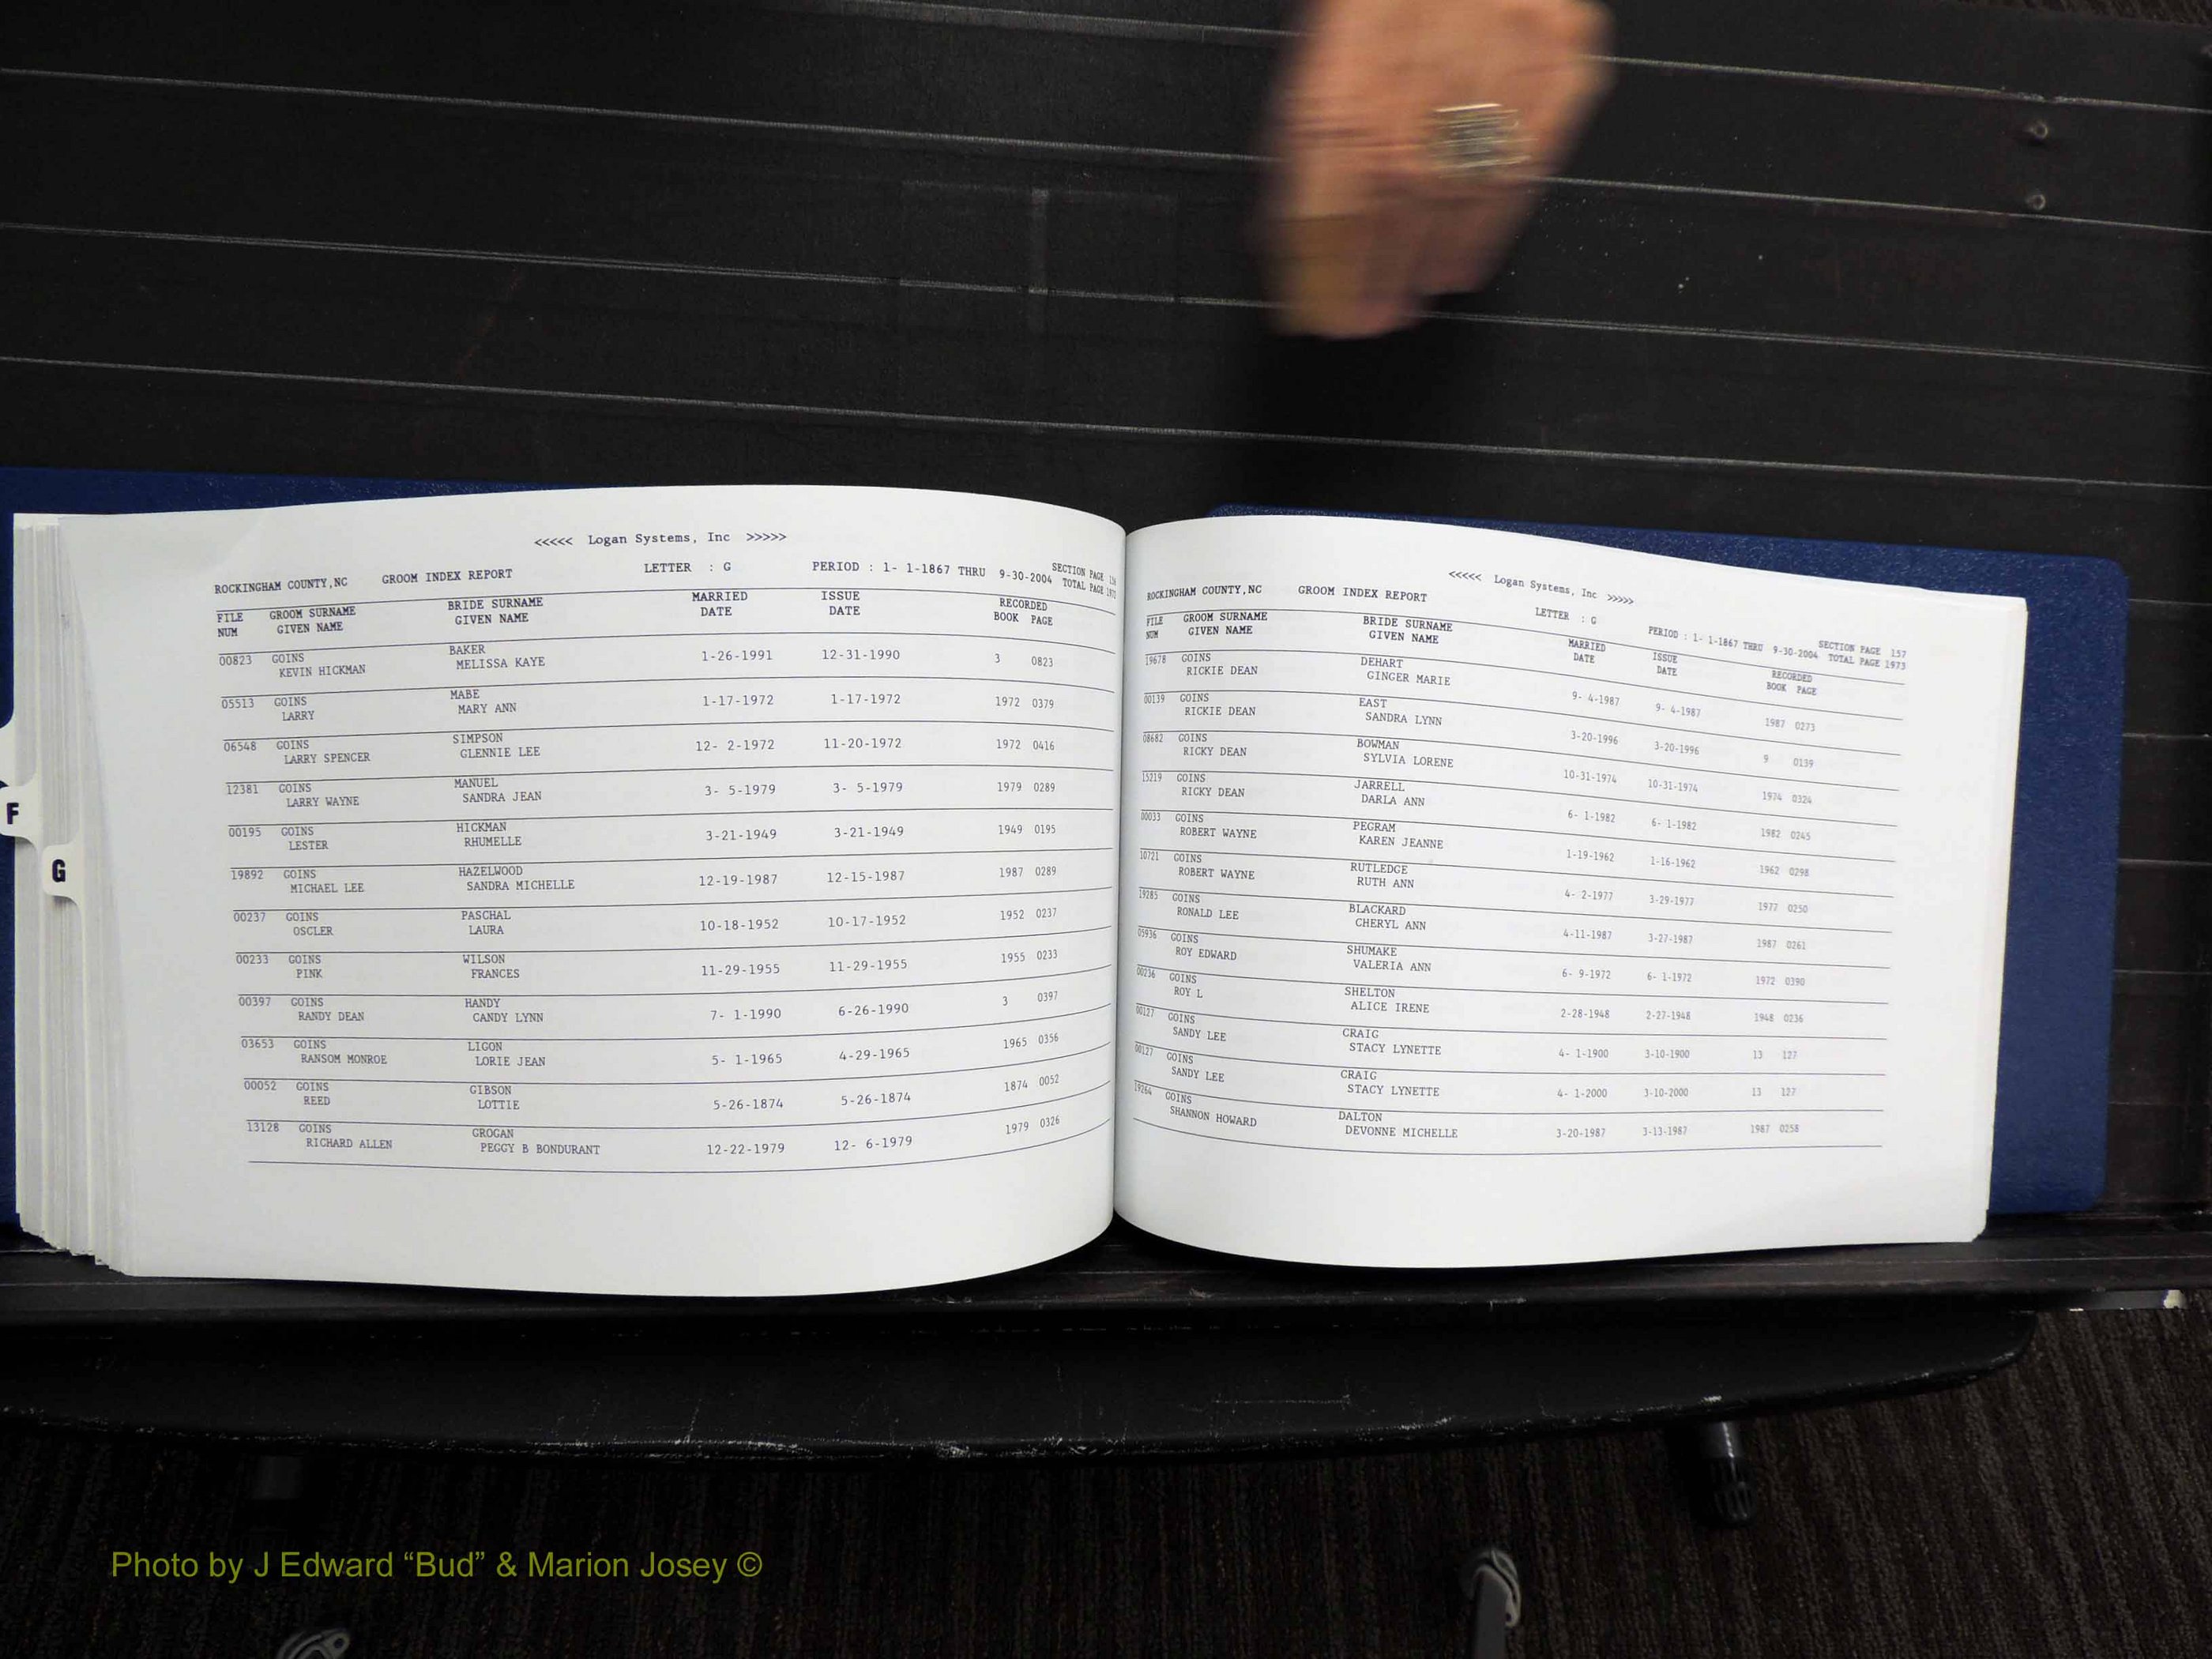 <<<<< Logan Systems, Inc >>>>>
ROCKINGHAM COUNTY,NC GROOM INDEX REPORT LETTER : G PERIOD : 1- 1-1867 THRU 9-30-2004 SECTION PAGE
TOTAL PAGE 1973
FILE GROOM SURNAME BRIDE SURNAME MARRIED ISSUE RECORDED
NUM GIVEN NAME GIVEN NAME DATE DATE BOOK PAGE
00823 GOINS BAKER 1-26-1991 12-31-1990 3 0823
KEVIN HICKMAN MELISSA KAYE
05513 GOINS MABE 1-17-1972 1-17-1972 1972 0379
LARRY MARY ANN
06548 GOINS SIMPSON 12- 2-1972 11-20-1972 1972 0416
LARRY SPENCER GLENNIE LEE
12381 GOINS MANUEL 3- 5-1979 3- 5-1979 1979 0289
LARRY WAYNE SANDRA JEAN
00195 GOINS HICKMAN 3-21-1949 3-21-1949 1949 0195
LESTER RHUMELLE
19892 GOINS HAZELWOOD 12-19-1987 12-15-1987 1987 0289
MICHAEL LEE SANDRA MICHELLE
00237 GOINS PASCHAL 10-18-1952 10-17-1952 1952 0237
OSCLER LAURA
00233 GOINS WILSON 11-29-1955 11-29-1955 1955 0233
PINK FRANCES
00397 GOINS HANDY 7- 1-1990 6-26-1990 3 0397
RANDY DEAN CANDY LYNN
03653 GOINS LIGON 5- 1-1965 4-29-1965 1965 0356
RANSOM MONROE LORIE JEAN
00052 GOINS GIBSON 5-26-1874 5-26-1874 1874 0052
REED LOTTIE
13128 GOINS GROGAN 12-22-1979 12- 6-1979 1979 0326
RICHARD ALLEN PEGGY B BONDURANT
F
G
<<<<< Logan Systems, Inc >>>>>
ROCKINGHAM COUNTY,NC GROOM INDEX REPORT LETTER : G PERIOD : 1- 1-1867 THRU 9-30-2004 SECTION PAGE 157
TOTAL PAGE 1973
FILE GROOM SURNAME BRIDE SURNAME MARRIED ISSUE RECORDED
NUM GIVEN NAME GIVEN NAME DATE DATE BOOK PAGE
19678 GOINS DEHART 9- 4-1987 9- 4-1987 1987 0273
RICKIE DEAN GINGER MARIE
00139 GOINS EAST 3-20-1996 3-20-1996 9 0139
RICKIE DEAN SANDRA LYNN
08682 GOINS BOWMAN 10-31-1974 10-31-1974 1974 0324
RICKY DEAN SYLVIA LORENE
15219 GOINS JARRELL 6- 1-1982 6- 1-1982 1982 0245
RICKY DEAN DARLA ANN
00033 GOINS PEGRAM 1-19-1962 1-16-1962 1962 0298
ROBERT WAYNE KAREN JEANNE
10721 GOINS RUTLEDGE 4- 2-1977 3-29-1977 1977 0250
ROBERT WAYNE RUTH ANN
19285 GOINS BLACKARD 4-11-1987 3-27-1987 1987 0261
RONALD LEE CHERYL ANN
05936 GOINS SHUMAKE 6- 9-1972 6- 1-1972 1972 0390
ROY EDWARD VALERIA ANN
00236 GOINS SHELTON 2-28-1948 2-27-1948 1948 0236
ROY L ALICE IRENE
00127 GOINS CRAIG 4- 1-1900 3-10-1900 13 127
SANDY LEE STACY LYNETTE
00127 GOINS CRAIG 4- 1-2000 3-10-2000 13 127
SANDY LEE STACY LYNETTE
19264 GOINS DALTON 3-20-1987 3-13-1987 1987 0258
SHANNON HOWARD DEVONNE MICHELLE
Photo by J Edward “Bud” & Marion Josey ©